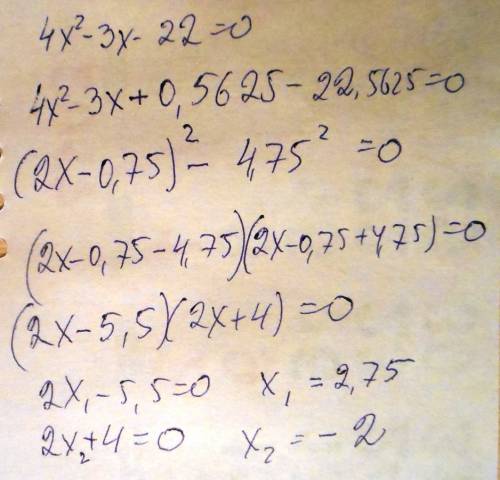 4x²-3x-22=0
4x²-3x+0,5625-22,5625=0
(2x-0,75)²-4,75²=0
(2x-0,75-4,75)(2x-0,75+4,75)=0
(2x-5,5)(2x+4)=0
2x₁-5,5=0 x₁=2,75
2x₂+4=0 x₂=-2